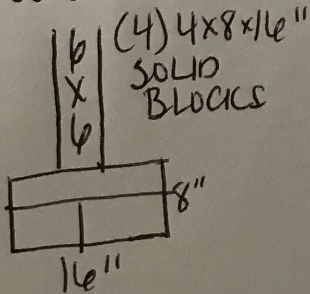 6
X
6
(4) 4x8x16"
SOLID
BLOCKS
8"
16"